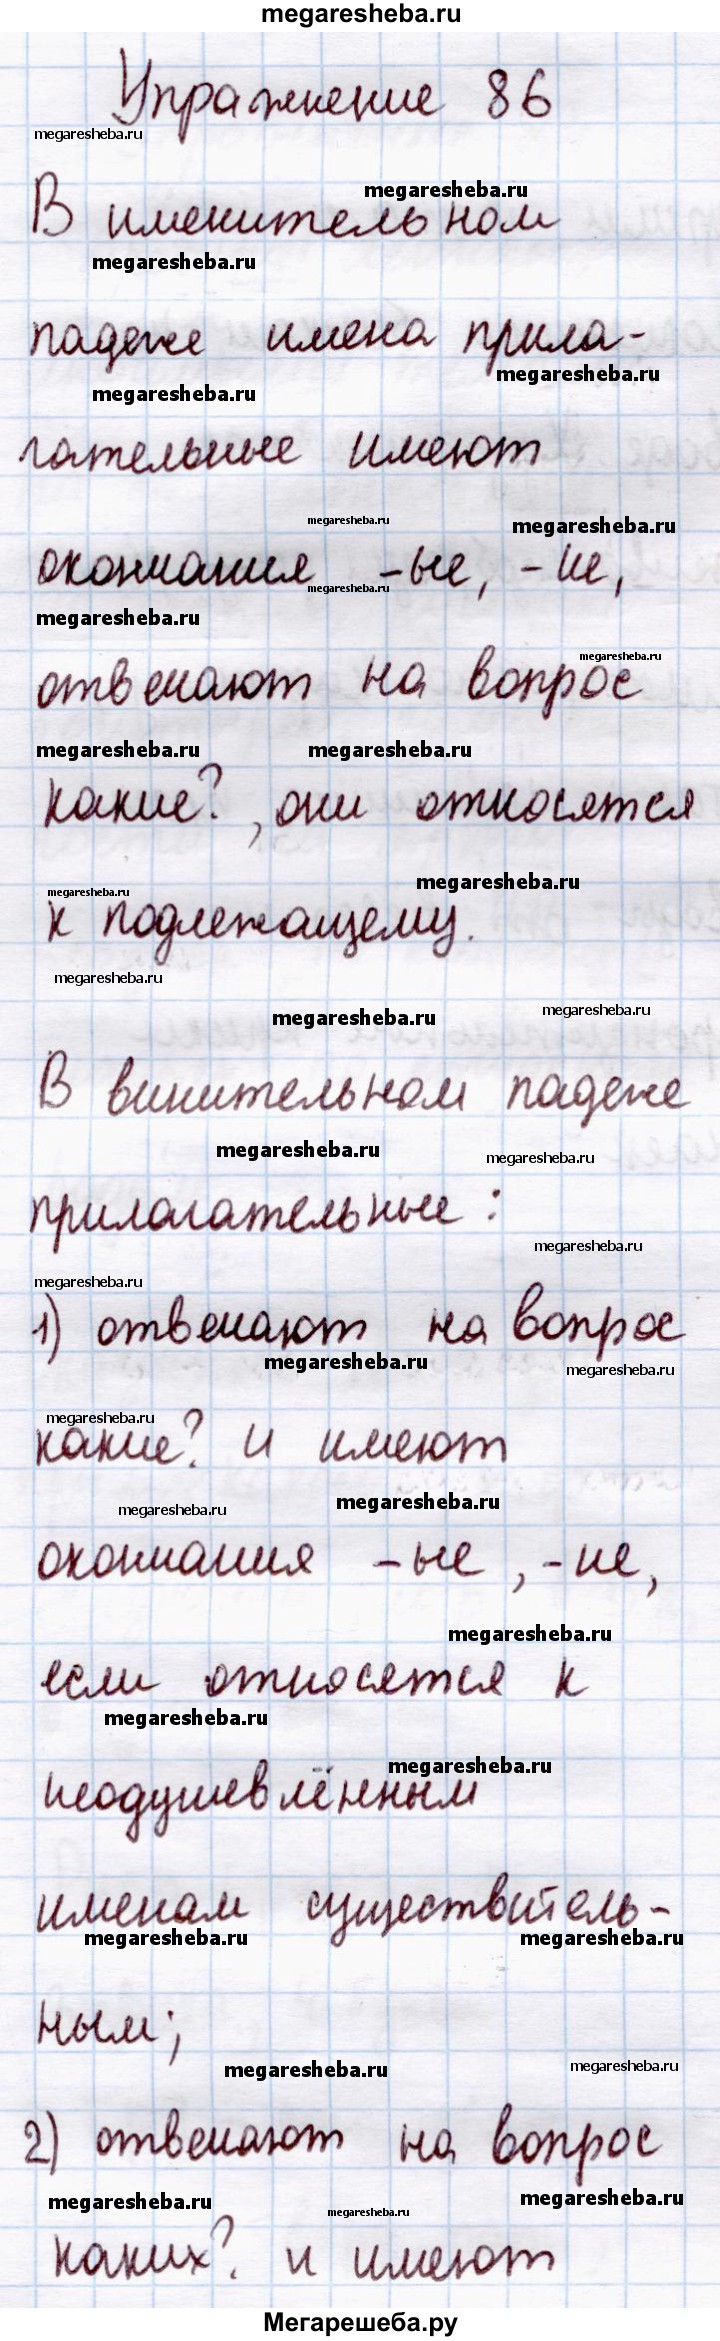 megaresheba.ru
Упражнение 86
megaresheba.ru
megaresheba.ru
В именительном
megaresheba.ru
падеже имена прила-
megaresheba.ru
megaresheba.ru
гательные имеют
megaresheba.ru
megaresheba.ru
окончания -ые, -ие,
megaresheba.ru
megaresheba.ru
megaresheba.ru
отвечают на вопрос
megaresheba.ru
megaresheba.ru
какие?, они относятся
megaresheba.ru
megaresheba.ru
к подлежащему.
megaresheba.ru
megaresheba.ru
megaresheba.ru
В винительном падеже
megaresheba.ru
megaresheba.ru
прилагательные:
megaresheba.ru
megaresheba.ru
1) отвечают на вопрос
megaresheba.ru
megaresheba.ru
megaresheba.ru
какие? и имеют
megaresheba.ru
megaresheba.ru
окончания -ые, -ие,
megaresheba.ru
если относятся к
megaresheba.ru
megaresheba.ru
неодушевлённым
именам существитель-
megaresheba.ru
megaresheba.ru
ным;
megaresheba.ru
megaresheba.ru
2) отвечают на вопрос
megaresheba.ru
megaresheba.ru
megaresheba.ru
каких? и имеют
Мегарешеба.ру